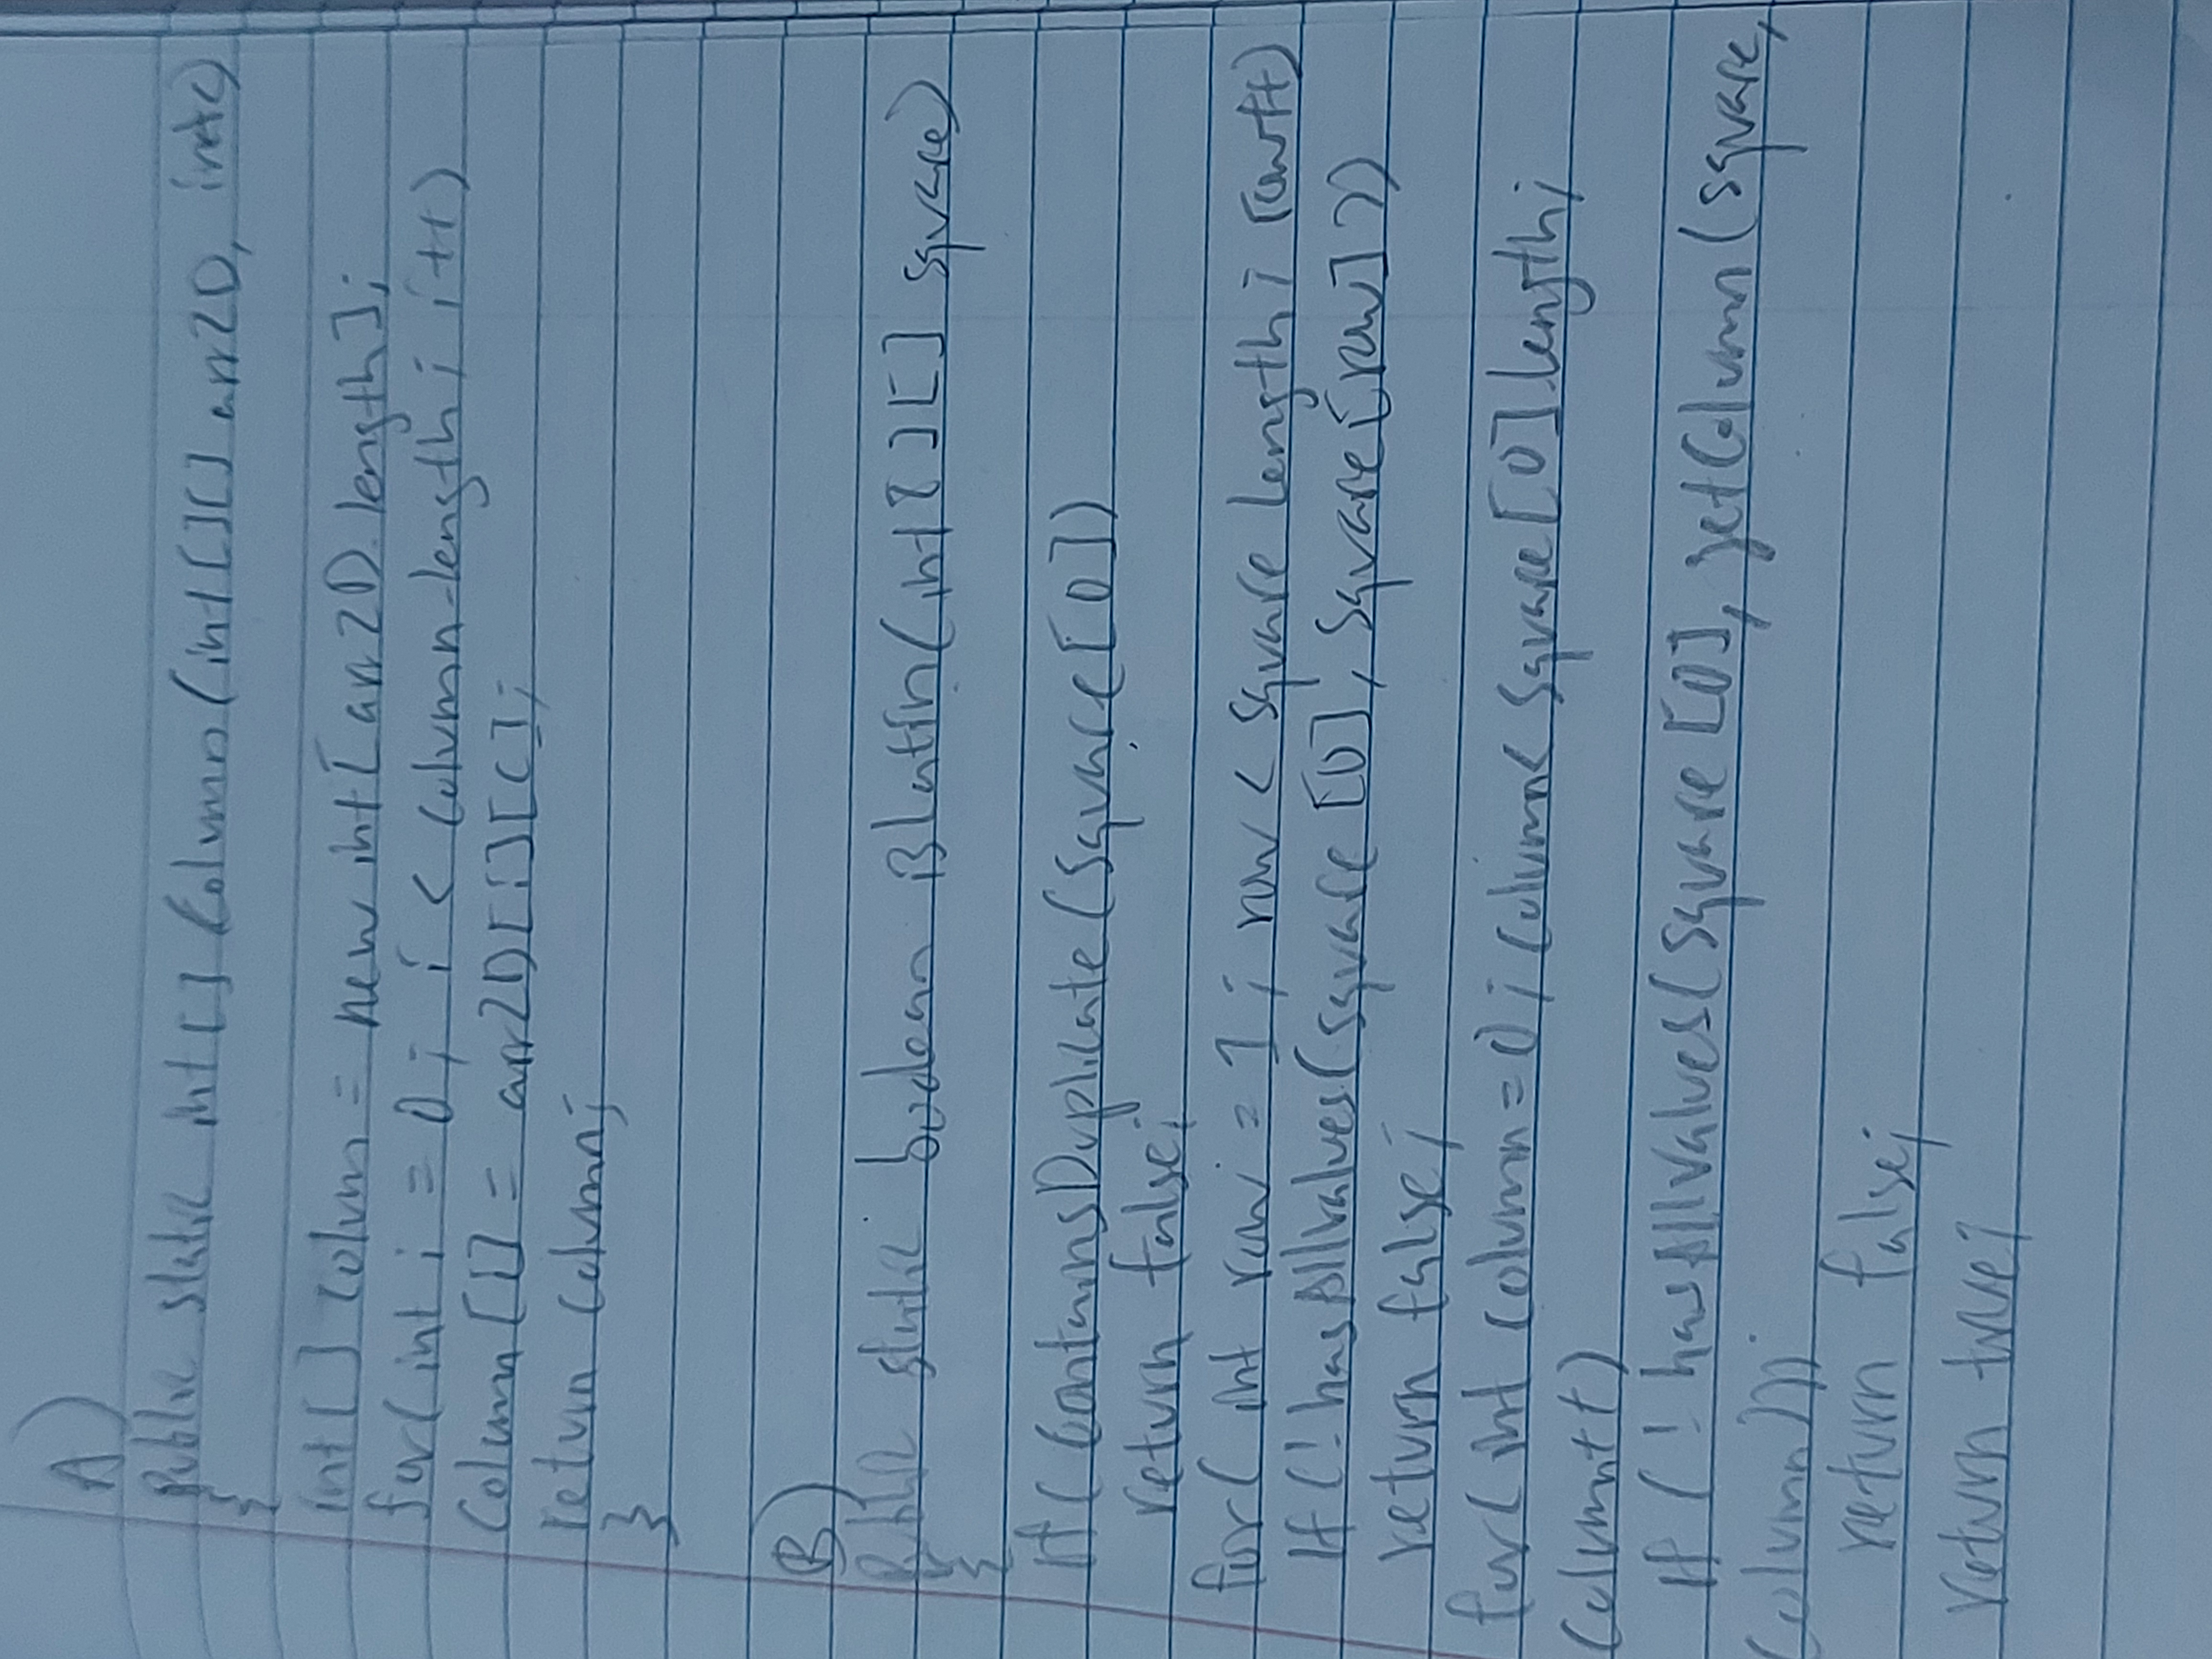 A)
Public static int[] Column(int[][] arr2D, int c)
{
int[] column = new int[arr2D.length];
for(int i = 0; i < column.length; i++)
Column[i] = arr2D[i][c];
return column;
}
B)
Public static boolean isLatin(int[][] square)
{
if(ContainsDuplicate(Square[0])
return false;
for( int row = 1; row < square length; row++)
If(!hasAllvalues(square[0], Square[row]))
return false;
for(int column=0; column< Square[0].length;
Column++)
If (! hasAllValues(square[0], getColumn(square,
column)));
return false;
return true;